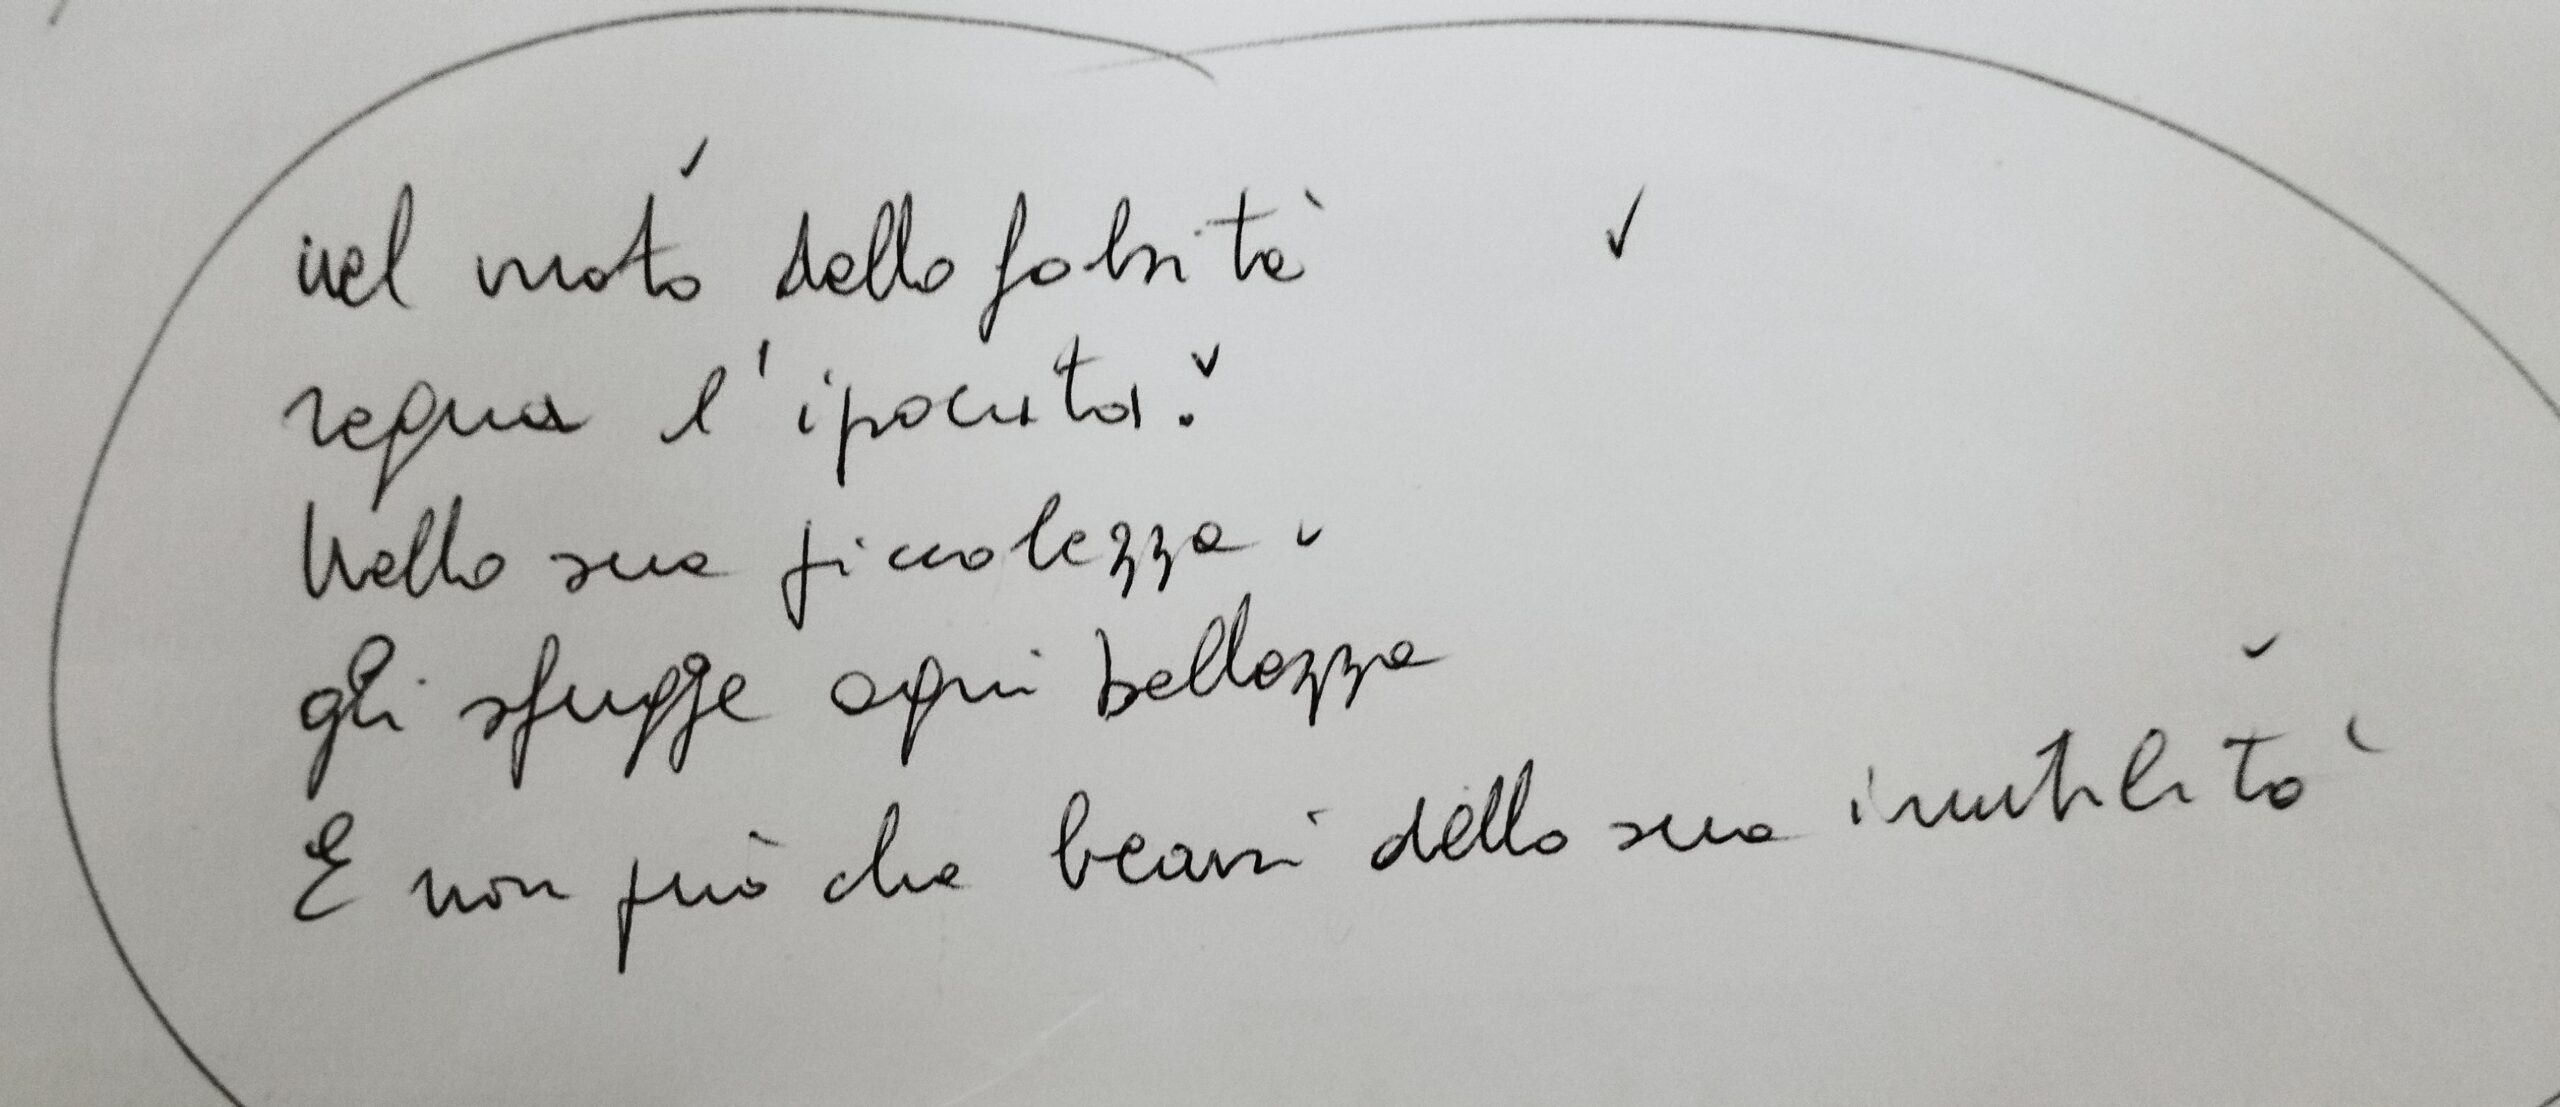 nel vuoto della falsità
regna l'ipocrita.
Nella sua piccolezza
gli sfugge ogni bellezza
E non può che bearsi della sua inutilità